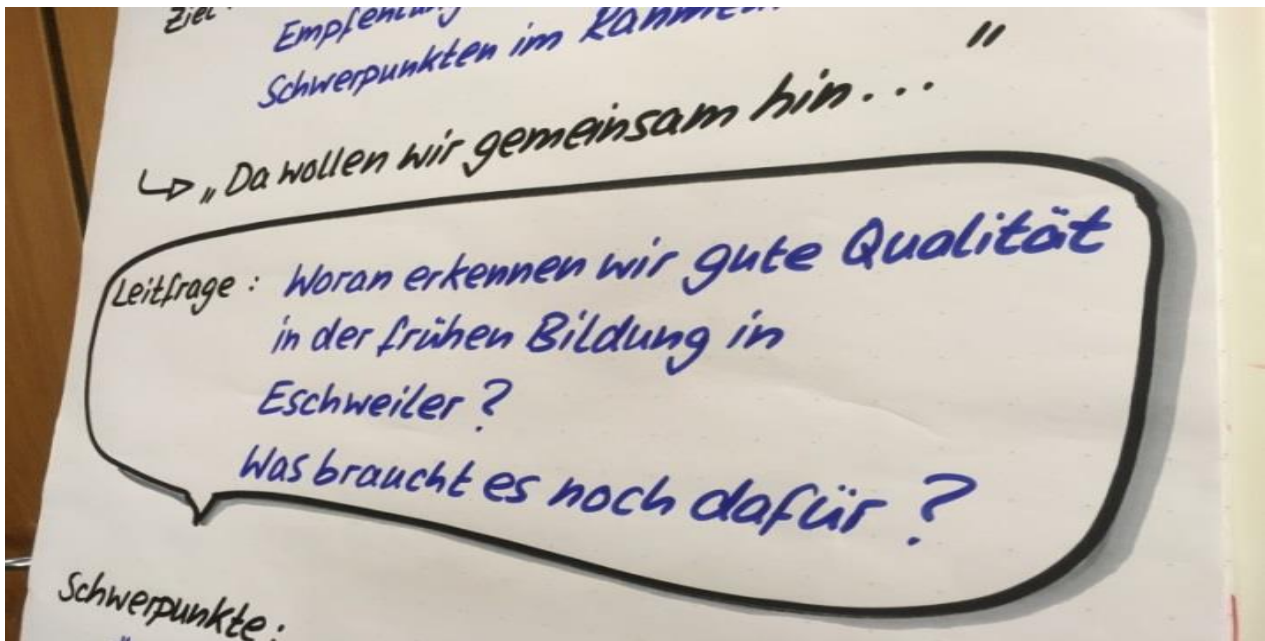 Ziel:
Empfehlung
Schwerpunkten im Rahmen
↳ „Da wollen wir gemeinsam hin..."
Leitfrage: Woran erkennen wir gute Qualität
in der frühen Bildung in
Eschweiler?
Was braucht es noch dafür?
Schwerpunkte: